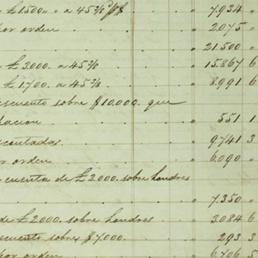 £1500 . . a 45 ⅞ p% . . " 7.934
por orden . . " 2.075
" 21.500
£ 2000. a 45 ⅞ . . " 15.867 6
£ 1700. a 45 ⅞ . . " 8.991 6
cuento sobre $10.000. que
lacion . . " 551 1
scontadas . . " 9741 3
por orden . . " 6090
cuenta de £ 2000. sobre Londres
" 7.350
de £ 2000. sobre Londres " 3084 6
cuento sobre $7.000. . . " 293 3
por orden . . " 6.706 5